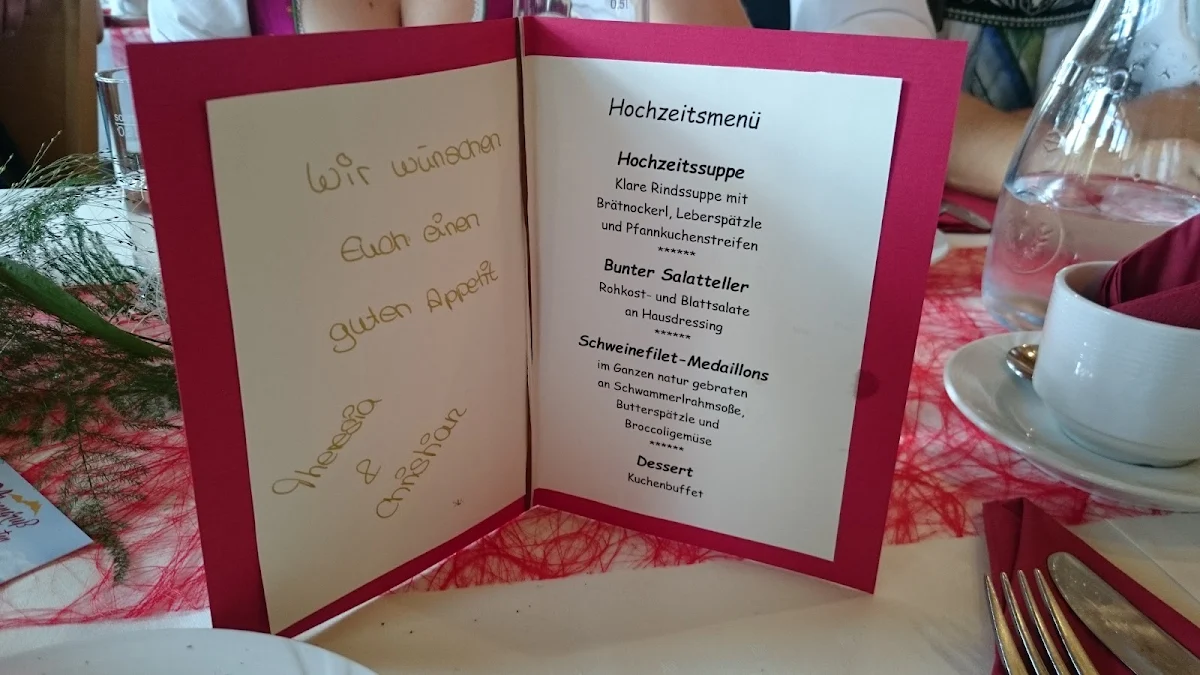 Wir wünschen
Euch einen
guten Appetit
Theresia
&
Christian
Hochzeitsmenü
Hochzeitssuppe
Klare Rindssuppe mit
Brätnockerl, Leberspätzle
und Pfannkuchenstreifen
******
Bunter Salatteller
Rohkost- und Blattsalate
an Hausdressing
******
Schweinefilet-Medaillons
im Ganzen natur gebraten
an Schwammerlrahmsoße,
Butterspätzle und
Broccoligemüse
******
Dessert
Kuchenbuffet
0,5l